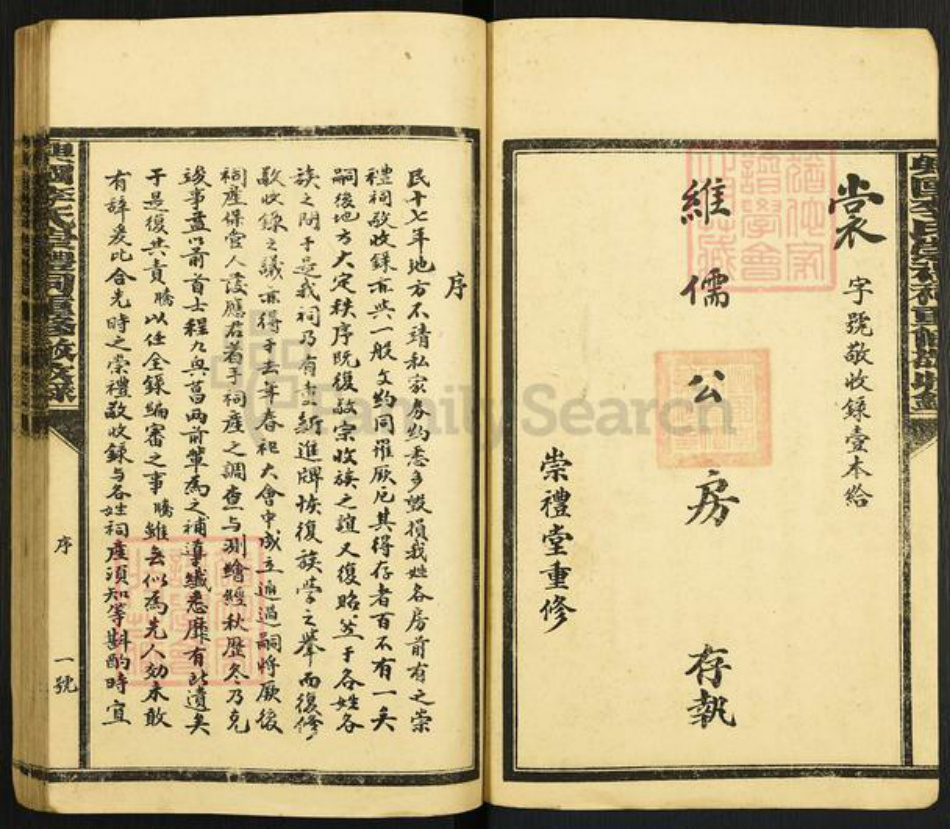 裳字號敬收錄壹本給
維儒公房存執
崇禮堂重修
序
民十七年地方不靖私家券約悉多毀損我姓各房前有之崇
禮祠敬收錄亦與一般文約同罹厥厄其得存者百不有一矣
嗣後地方大定秩序既復敬宗收族之誼又復昭然于各姓各
族之間于是我祠乃有重新進牌恢復族學之舉而復修
敬收錄之議亦得于去年春祀大會中成立通過嗣將厥後
祠產保管人後應君着手祠產之調查与測繪經秋歷冬乃克
竣事並以前首士程九與菖兩前輩為之補導纖悉靡有所遺矣
于是復共責騰以任全錄編審之事騰雖無似為先人効未敢
有辞爰比合先時之崇禮敬收錄与各姓祠產須知等斟酌時宜
序
一號
FamilySearch